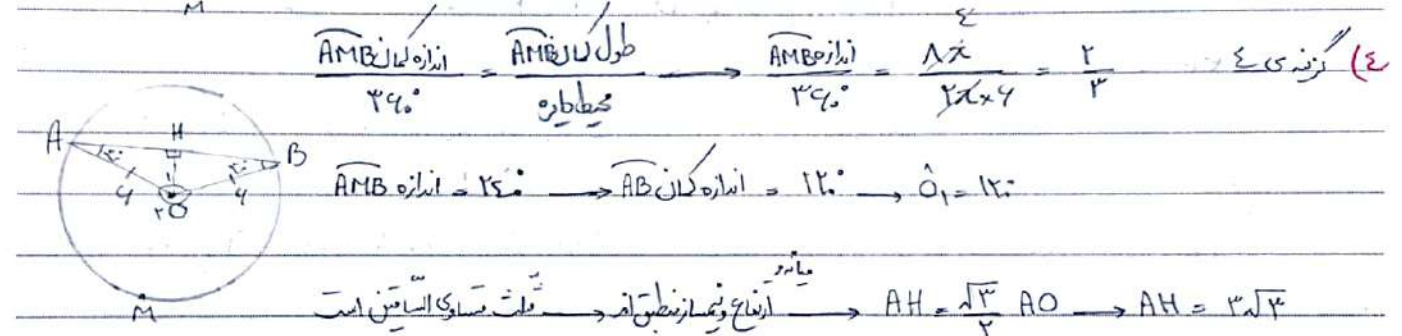 M
٤) گزینه‌ی ٤   اندازه کمان AMB / ۳۶۰° = طول کمان AMB / محیط دایره → اندازه AMB / ۳۶۰° = ۸π / ۲π×۶ = ۲/۳
٤
A H B ۳۰ ۳۰ ۶ ۶ ۱ ۲ O M
اندازه AMB = ۲٤۰° → اندازه کمان AB = ۱۲۰° → Ô₁ = ۱۲۰°
مثلث متساوی الساقین است → ارتفاع و نیمساز منطبق‌اند → AH = √۳/۲ AO → AH = ۳√۳
میانه و